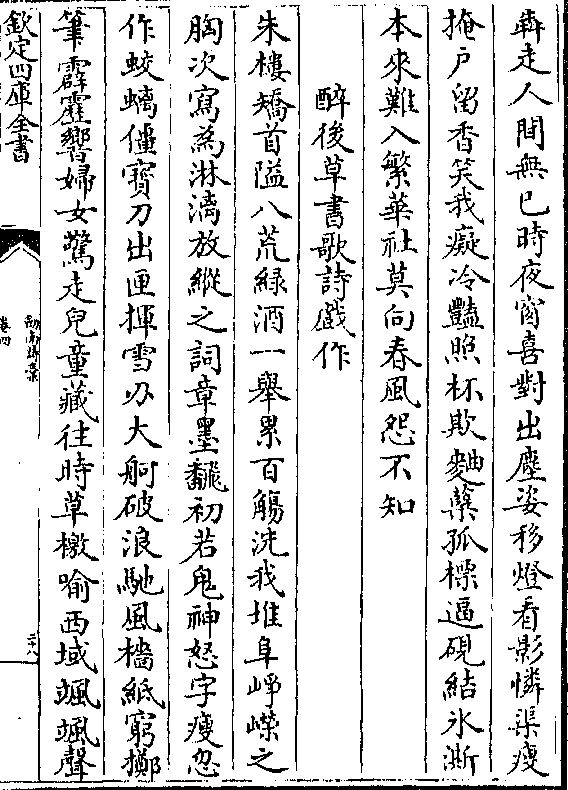 犇走人間無已時夜窗喜對出塵姿移燈看影憐渠瘦
掩户留香笑我癡冷豔照杯欺麴櫱孤標逼硯結氷澌
本來難入繁華社莫向春風怨不知
醉後草書歌詩戲作
朱樓矯首隘八荒緑酒一舉累百觴洗我堆阜崢嶸之
胸次寫為淋漓放縱之詞章墨翻初若鬼神怒字瘦忽
作蛟螭僵寳刀出匣揮雪刃大舸破浪馳風檣紙窮擲
筆霹靂響婦女驚走兒童藏往時草檄喻西域颯颯聲
欽定四庫全書
劍南詩藁
卷四
三十八